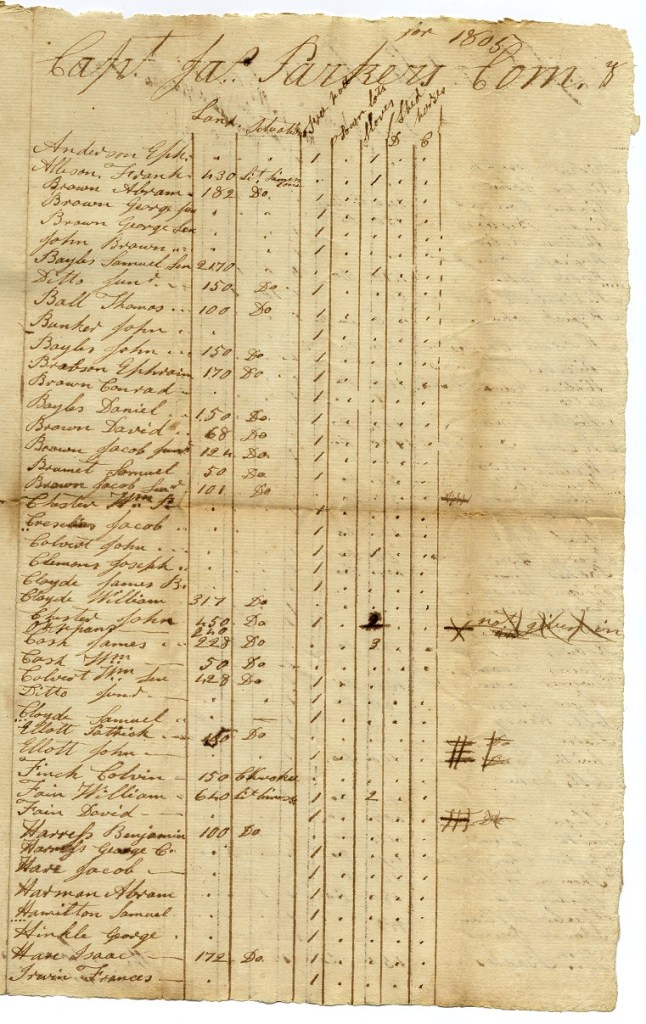 for 1805
Capt. Jas. Parkers Com. y
Land. Situation free poles town lots Slaves Stud horses
D C
Anderson Eph. . . 1 . . . .
Allison Frank 430 Lit. Limestone . . 1 . .
Brown Abram 182 Do. 1 . . . .
Brown George Jun . . 1 . . . .
Brown George Sen . . . . . .
John Brown . . 1 . . . .
Bayles Samuel Sen 2170 . . 1 . .
Ditto Junr. 150 Do 1 . . . .
Ball Thomas 100 Do 1 . . . .
Bunker John . . 1 . . . .
Bayles John 150 Do 1 . . . .
Brabson Ephraim 170 Do 1 . . . .
Brown Conrad . . 1 . . . .
Bayles Daniel 150 Do 1 . . . .
Brown David 68 Do 1 . . . .
Brown Jacob Junr 124 Do 1 . . . .
Brumet Samuel 50 Do 1 . . . .
Brown Jacob Senr 101 Do . . . .
Chester Wm P. . . 1 . . . .
Jacob . . 1 . . . .
Colvert John . . 1 . 1 . .
Clemons Joseph . . 1 . . . .
Cloyde James B. . . 1 . . . .
Cloyde William 317 Do 1 . . . .
Chester John 450 Do 1 . 2 . . not given in
Orphans 240
Cash James 228 Do . . 3 . .
Cash Wm 50 Do 1 . . . .
Colvert Wm Sen 428 Do . . . .
Ditto Junr . . 1 . . . .
Cloyde Samuel . 1 . . . .
Ellott Patrick 150 Do 1 . . . .
Ellott John . . 1 . . . .
Finch Colvin 150 Cherokee 1 . . . .
Fain William 640 Lit Limesto 1 . 2 . .
Fain David . . 1 . . . .
Harress Benjamin 100 Do 1 . . . .
Harress George C. . . 1 . . . .
Hare Jacob . . 1 . . . .
Harman Abram . . 1 . . . .
Hamilton Samuel . . 1 . . . .
Hinkle George . . 1 . . . .
Hare Isaac 172 Do 1 . . . .
Irwin Frances . . 1 . . . .